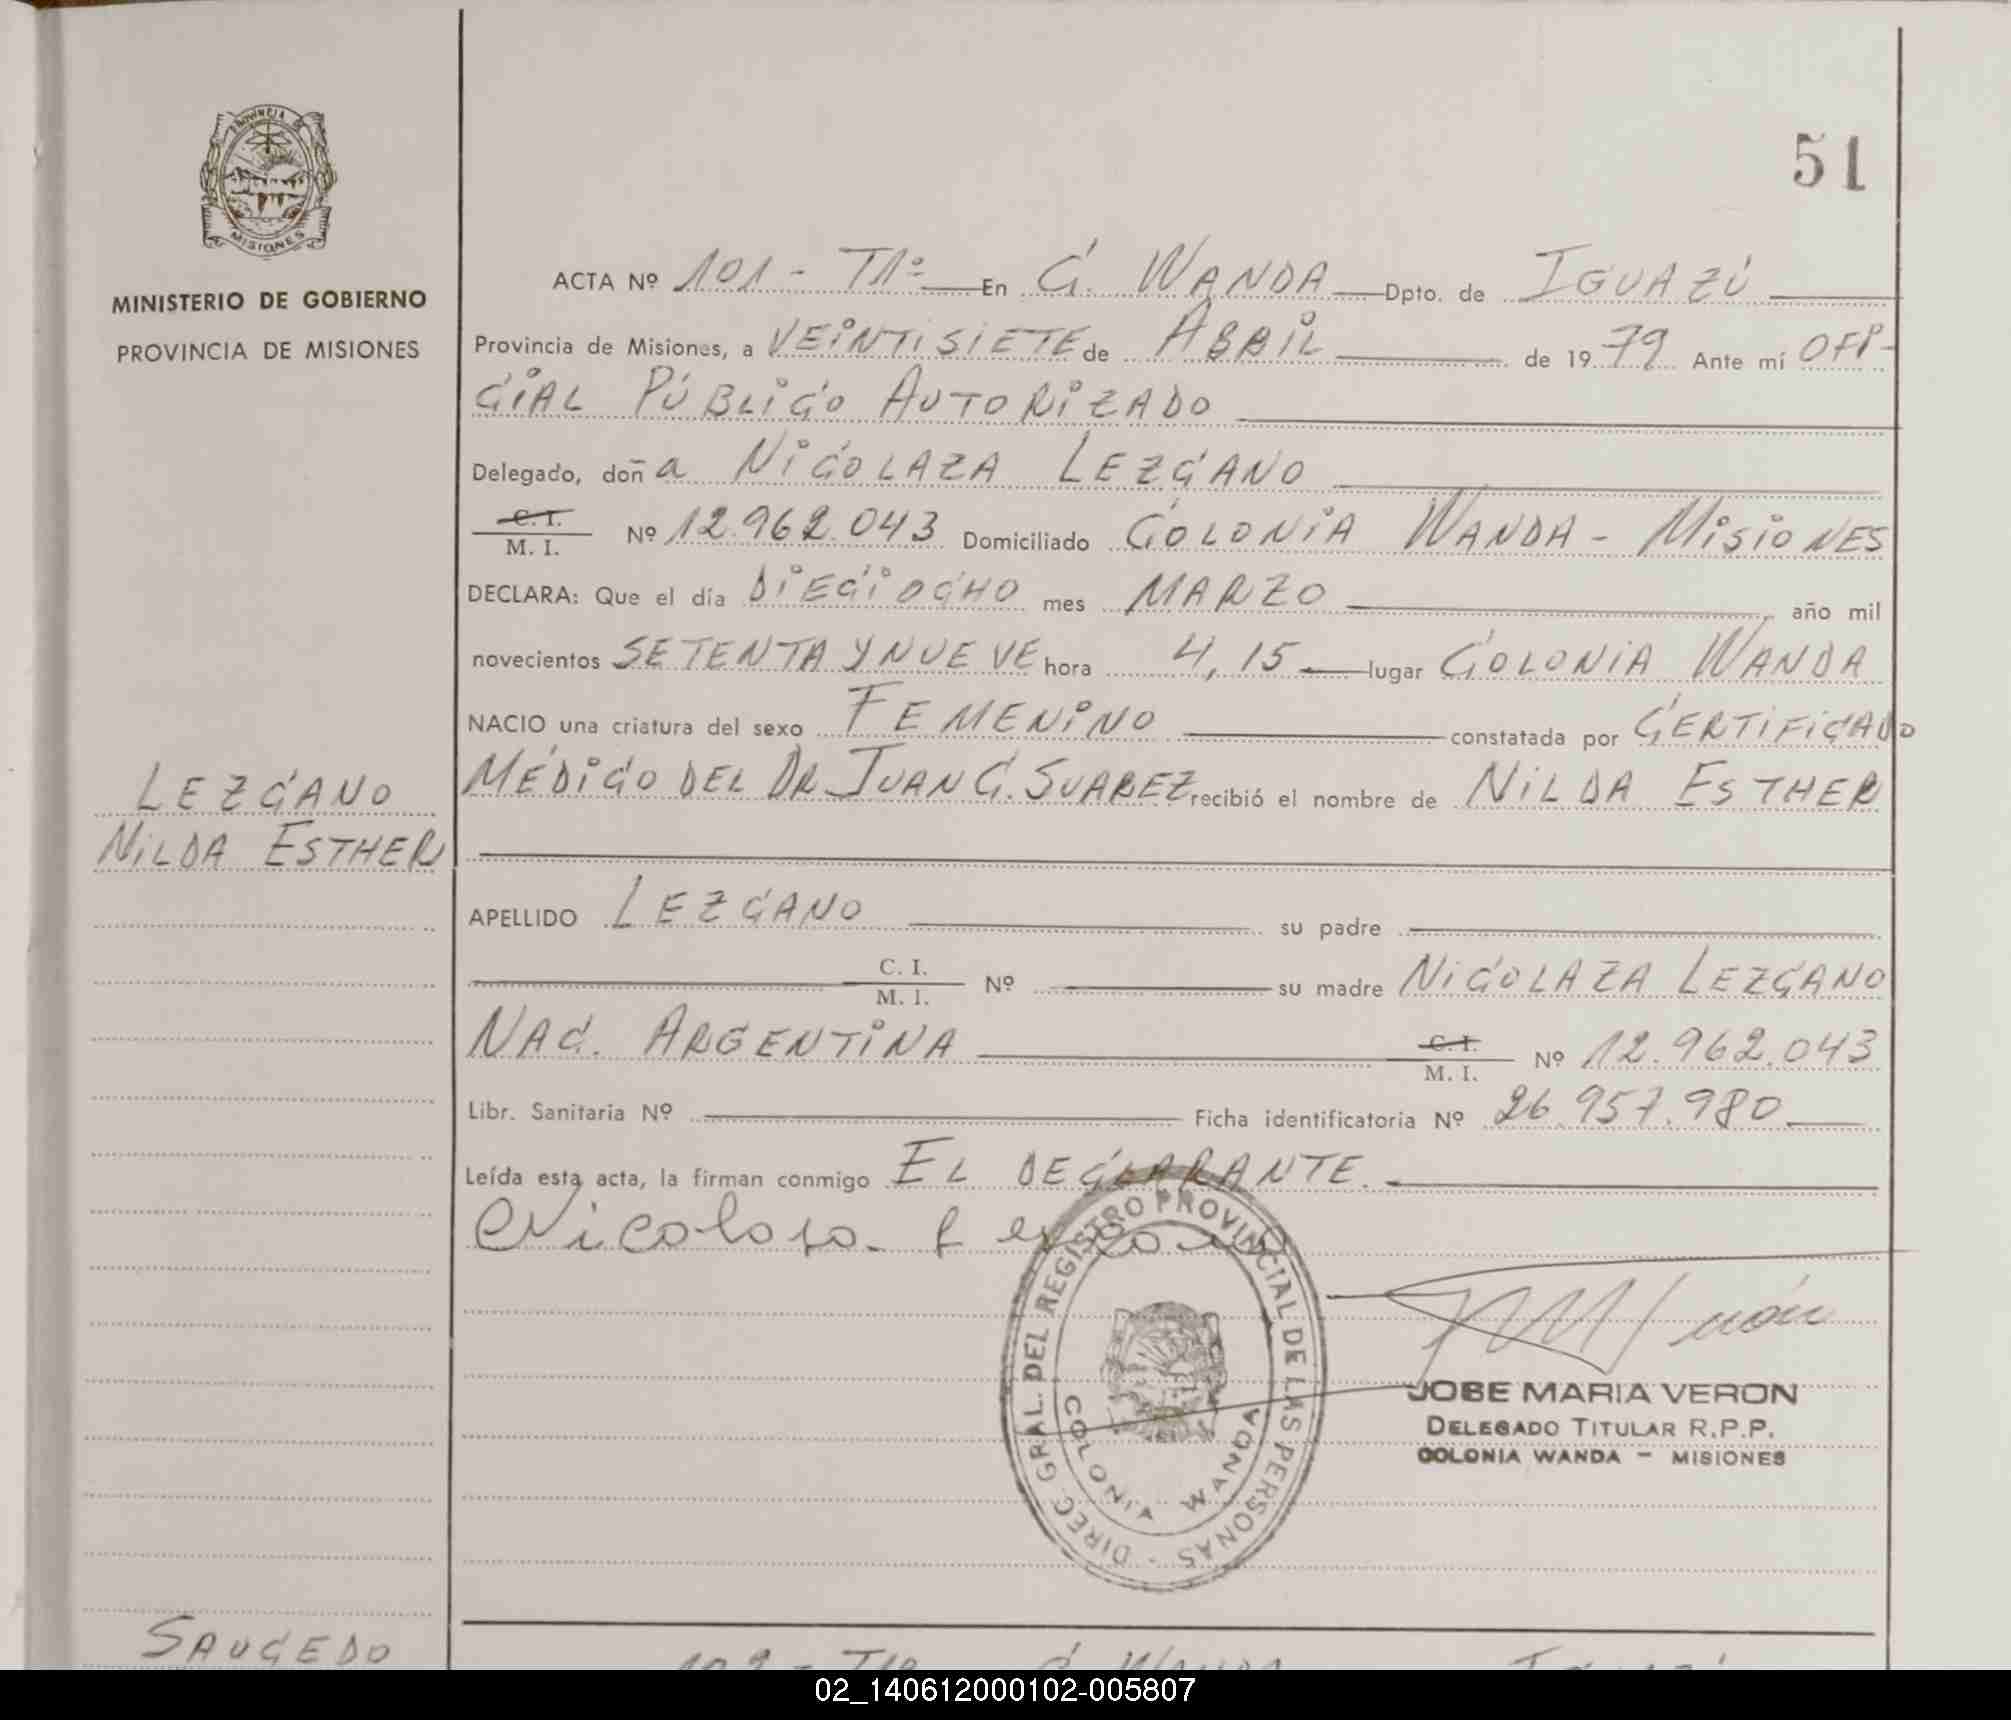 51
PROVINCIA DE
MISIONES
MINISTERIO DE GOBIERNO
PROVINCIA DE MISIONES
ACTA Nº 101 - T1º En C. WANDA Dpto. de IGUAZÚ
Provincia de Misiones, a VEINTISIETE de ABRIL de 1979 Ante mí OFI-
CIAL PÚBLICO AUTORIZADO
Delegado, doña NICOLAZA LEZCANO
C. I.
M. I. Nº 12.962.043 Domiciliado COLONIA WANDA - MISIONES
DECLARA: Que el día DIECIOCHO mes MARZO año mil
novecientos SETENTA Y NUEVE hora 4,15 lugar COLONIA WANDA
NACIO una criatura del sexo FEMENINO constatada por CERTIFICADO
MÉDICO DEL DR. JUAN C. SUAREZ recibió el nombre de NILDA ESTHER
LEZCANO
NILDA ESTHER
APELLIDO LEZCANO su padre
C. I.
M. I. Nº su madre NICOLAZA LEZCANO
NAC. ARGENTINA C. I.
M. I. Nº 12.962.043
Libr. Sanitaria Nº Ficha identificatoria Nº 26.957.980
Leída esta acta, la firman conmigo EL DECLARANTE.
Nicolasa Lezcano
DIREC. GRAL. DEL REGISTRO PROVINCIAL DE LAS PERSONAS -
COLONIA WANDA
JOSE MARIA VERON
DELEGADO TITULAR R.P.P.
COLONIA WANDA - MISIONES
SAUCEDO
102 - T1º C. WANDA IGUAZÚ
02_140612000102-005807